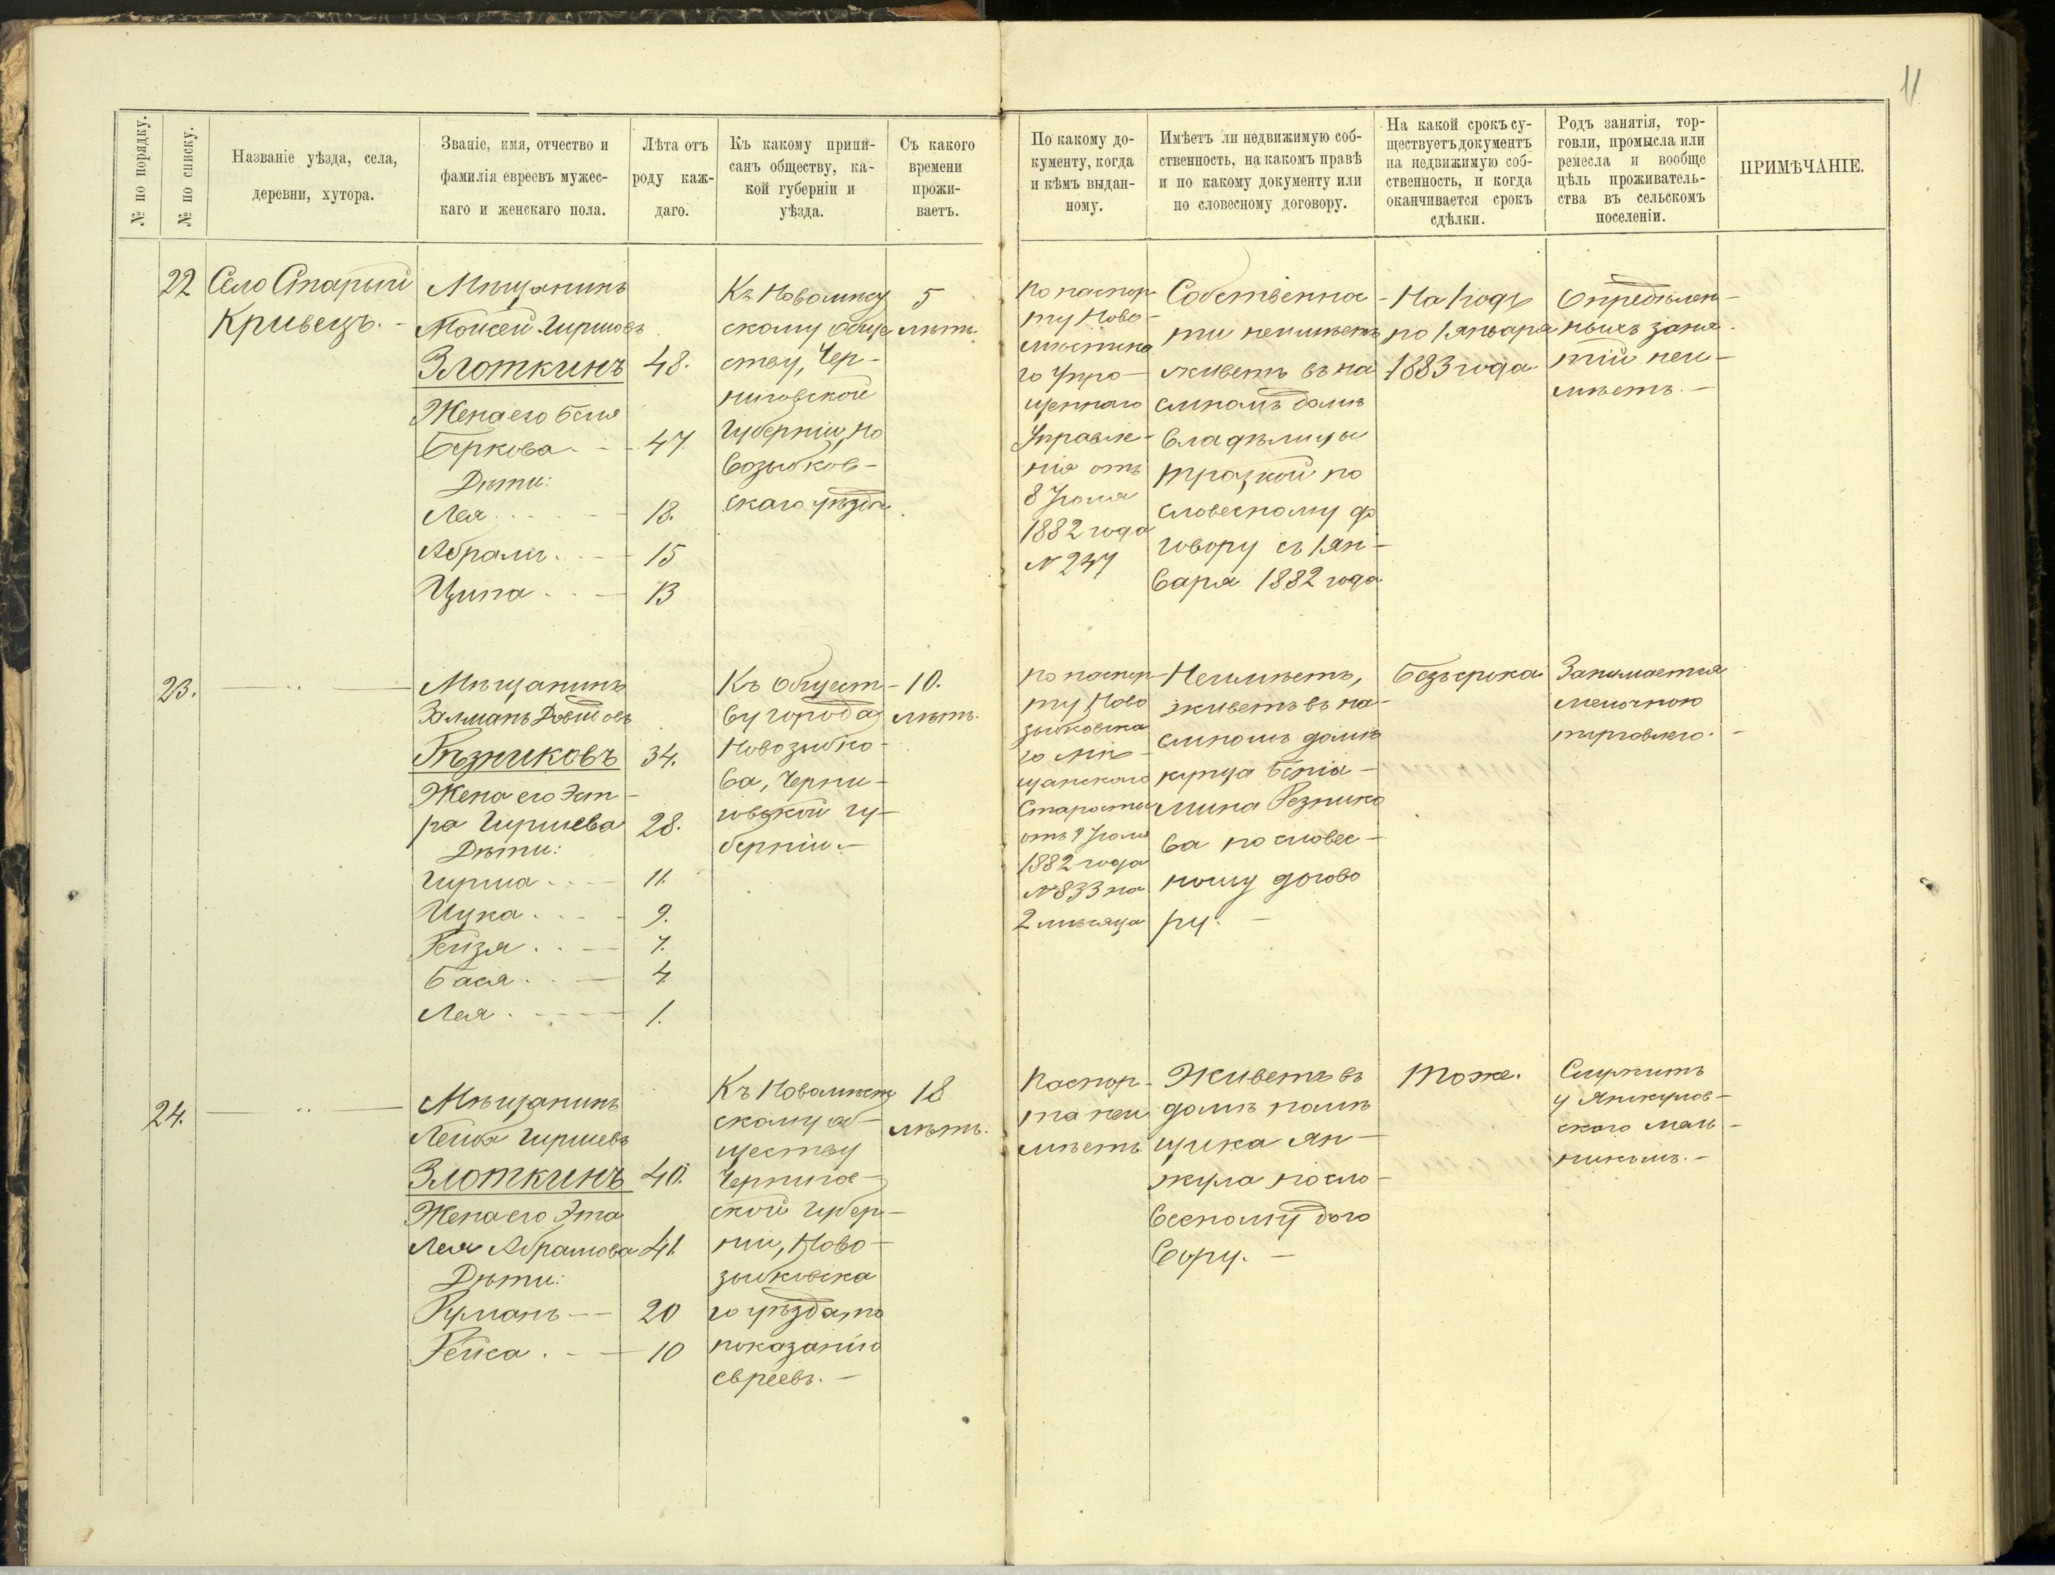 11
№ по порядку.
№ по списку.
Названіе уѣзда, села,
деревни, хутора.
Званіе, имя, отчество и
фамилія евреевъ мужес-
каго и женскаго пола.
Лѣта отъ
роду каж-
даго.
Къ какому припи-
санъ обществу, ка-
кой губерніи и
уѣзда.
Съ какого
времени
прожи-
ваетъ.
По какому до-
кументу, когда
и кѣмъ выдан-
ному.
Имѣетъ ли недвижимую соб-
ственность, на какомъ правѣ
и по какому документу или
по словесному договору.
На какой срокъ су-
ществуетъ документъ
на недвижимую соб-
ственность, и когда
оканчивается срокъ
сдѣлки.
Родъ занятія, тор-
говли, промысла или
ремесла и вообще
цѣль проживатель-
ства въ сельскомъ
поселеніи.
ПРИМѢЧАНІЕ.
22
Село Старый
Кривецъ. -
Мѣщанинъ
Мойсей Гиршовъ
Злоткинъ 48.
Жена его Бейля
Беркова - 47
Дѣти:
Лея 18.
Абрамъ 15
Ципа 13
Къ Новомѣст
скому обще
ству, Чер-
ниговской
Губерніи, Но
возыбков-
скаго уѣзда.
5
лѣтъ.
По паспор-
ту Ново-
мѣстска
го Упро-
щеннаго
Управле-
нія отъ
8 Іюля
1882 года
№ 247
Собственно-
сти неимѣетъ
живетъ въ на
емномъ домѣ
Владѣлицы
по
словесному до
говору съ 1 Ян-
варя 1882 года
На 1 годъ
по 1 января
1883 года
Опредѣлен-
ныхъ заня
тій неи-
мѣетъ. -
23. - " -
Мѣщанинъ
Залманъ Довидовъ
Рѣзниковъ 34.
Жена его Эст-
ра Гиршева 28.
Дѣти:
Гирша 11.
Ицка 9.
Рейзя 7.
Бася 4
Лея 1.
Къ Общест-
ву города
Новозыбко-
ва, Черни-
говской гу-
берніи. -
10.
лѣтъ.
По паспор-
ту Ново
зыбковска
го Мѣ-
щанского
Старосты
отъ 9 Іюля
1882 года
№ 833 на
2 мѣсяца
Неимѣетъ,
живетъ въ на-
емномъ домѣ
купца Беніа-
мина Резнико
ва по словес-
ному догово
ру. -
Безъ срока
Занимается
мелочною
торговлею. -
24. - " -
Мѣщанинъ
Лейба Гиршевъ
Злоткинъ 40.
Жена его Эта
Лея Абрамова 41.
Дѣти:
Руманъ - 20
Рейса - 10
Къ Новомѣст
скому об-
ществу
Чернигов-
ской Губер-
ніи, Ново-
зыбковска
го уѣзда, по
показанію
евреевъ. -
18
лѣтъ.
Паспор-
та неи
мѣетъ
Живетъ въ
домѣ помѣ
щика Ян-
жула по сло-
весному дого
вору. -
Тоже.
Служитъ
у Янжулов-
скаго Мель-
никомъ. -